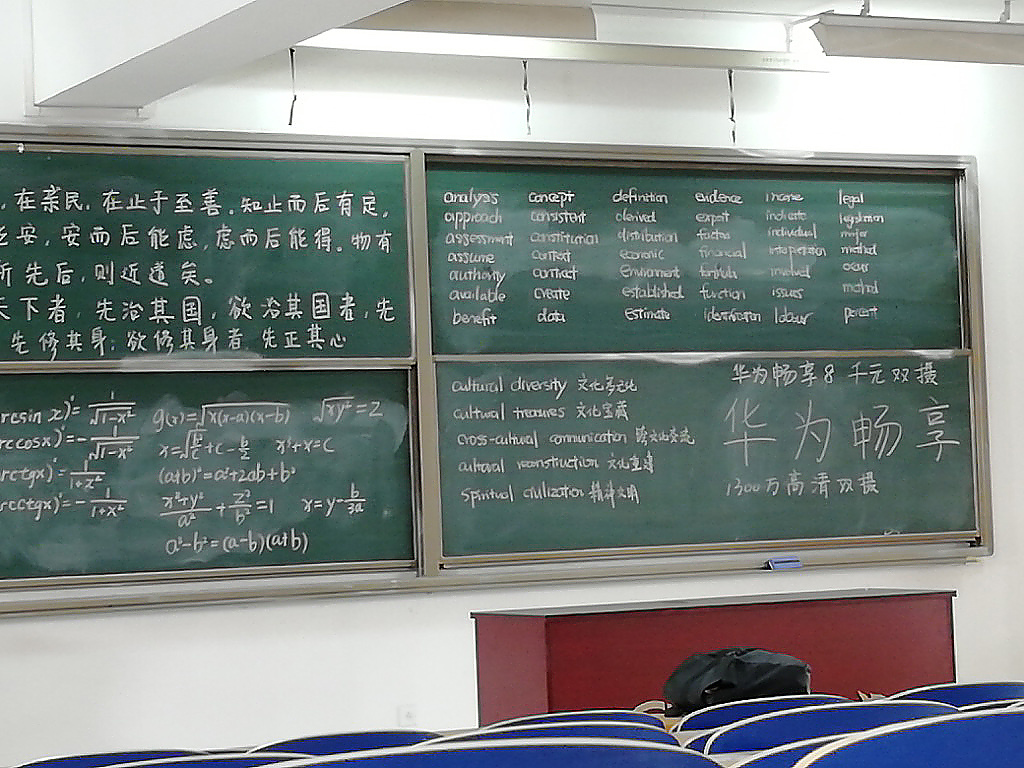 ，在亲民，在止于至善。知止而后有定，
安，安而后能虑，虑而后能得。物有
所先后，则近道矣。
天下者，先治其国，欲治其国者，先
先修其身；欲修其身者 先正其心
analysis concept definition evidence income legal
approach consistent derived export indicate legislation
assessment constitution distribution factors individual major
assume context economic financial interpretation method
authority contract environment formula involved occur
available create established function issues
benefit data estimate identification labour percent
rcsin x)'= 1/√(1-x²) g(x)=√(x(x-a)(x-b)) √(xy²)=2
rccosx)'=- 1/√(1-x²)
(a+b)²=a²+2ab+b²
rctgx)'= 1/(1+x²)
rcctgx)'=- 1/(1+x²) (x²+y²)/a²+z²/b²=1 x=y-b/3a
a²-b²=(a-b)(a+b)
cultural diversity 文化多元化
cultural treasures 文化宝藏
cross-cultural communication 跨文化交流
cultural reconstruction 文化重建
spiritual civilization 精神文明
华为畅享8 千元双摄
华为畅享
1300万高清双摄